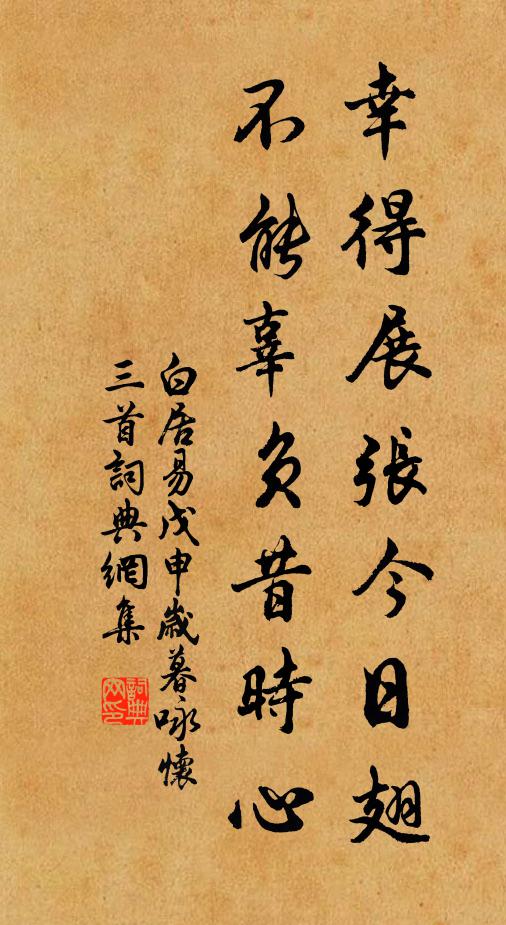 幸得展張今日翅
不能辜負昔時心
白居易戊申歲暮咏懷
三首詞典網集
詞典
网印